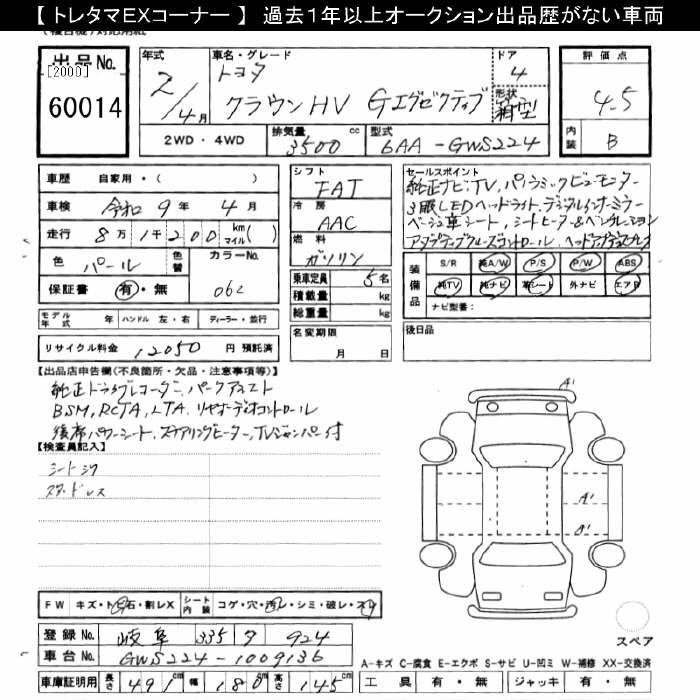 【 トレタマEXコーナー 】 過去1年以上オークション出品歴がない車両
出品No.
[2000]
60014
年式
2/4月
車名・グレード
トヨタ
クラウンHV Gエグゼクティブ
ドア
4
形状
箱型
評価点
4.5
内装
B
2WD ・ 4WD
排気量 3500 cc
型式 6AA-GWS224
車歴 自家用・( )
車検 令和 9年 4月
走行 8万1千200 km マイル( )
色 パール
色替
カラーNo. 062
保証書 有・無
モデル年式 年 ハンドル 左・右 ディーラー・並行
リサイクル料金 12050 円 預託済
シフト
FAT
冷房
AAC
燃料
ガソリン
乗車定員 5名
積載量 kg
総重量 kg
名変期限
月 日
セールスポイント
純正ナビ・TV, パノラミックビューモニター
3眼LEDヘッドライト, デジタルインナーミラー
ベージュ革シート, シートヒーター&ベンチレーション
アダプティブクルーズコントロール, ヘッドアップディスプレイ
装備品
S/R 純A/W P/S P/W ABS
純TV 純ナビ 革シート 外ナビ エアB
ナビ型番:
後日品
【出品店申告欄(不良箇所・欠品・注意事項等)】
純正ドライブレコーダー, パークアシスト
BSM, RCTA, LTA, リヤオーディオコントロール
後席パワーシート, ステアリングヒーター, TVジャンパー付
【検査員記入】
シートシワ
スタッドレス
A1
A1
A1
FW キズ・トビ石・割レX シート内装 コゲ・穴・汚レ・シミ・破レ・スレ
登録No. 岐阜 335 タ 924
車台No. GWS224-1009136
車庫証明用 長さ 491cm 幅 180cm 高さ 145cm
スペア
A-キズ C-腐食 E-エクボ S-サビ U-凹ミ W-補修 XX-交換済
工具 有・無 ジャッキ 有・無